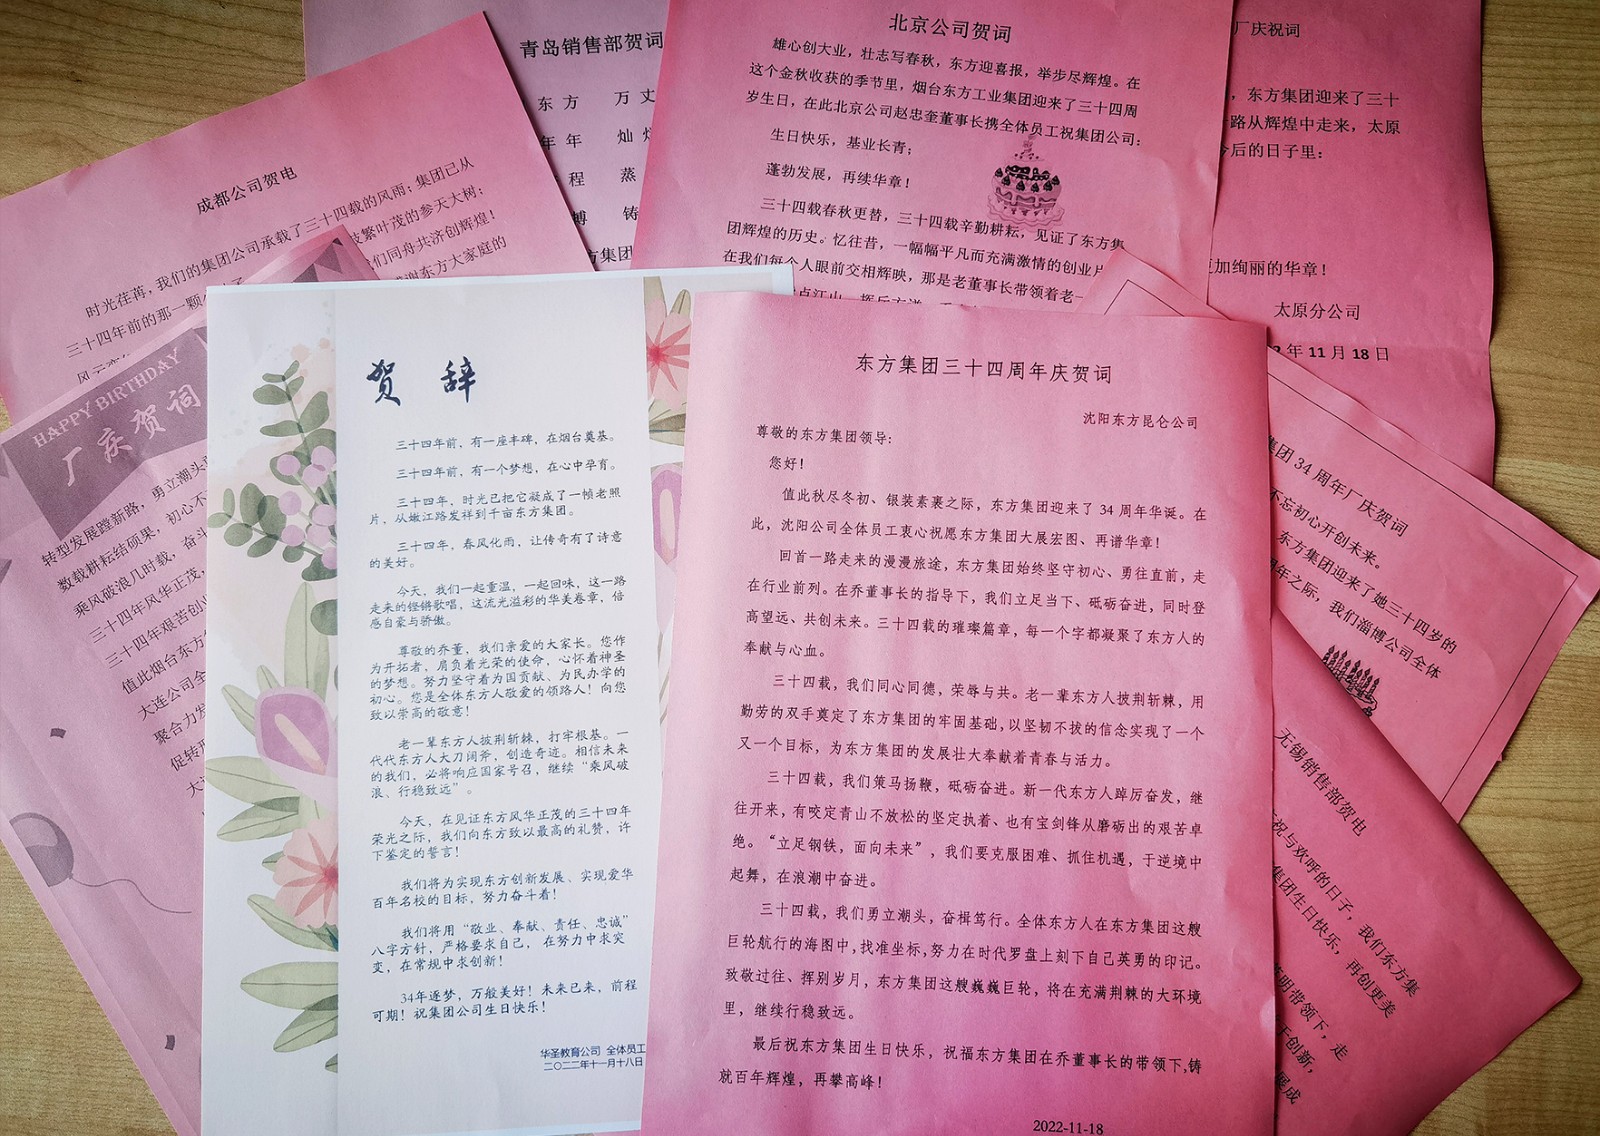 成都公司贺电
时光荏苒，我们的集团公司承载了三十四载的风雨；集团已从
三十四年前的那一颗
枝繁叶茂的参天大树；
们同舟共济创辉煌！
东方大家庭的
青岛销售部贺词
东方 万丈
年年 灿
程 蒸
铸
方集团
北京公司贺词
雄心创大业，壮志写春秋，东方迎喜报，举步尽辉煌。在
这个金秋收获的季节里，烟台东方工业集团迎来了三十四周
岁生日，在此北京公司赵忠奎董事长携全体员工祝集团公司：
生日快乐，基业长青；
蓬勃发展，再续华章！
三十四载春秋更替，三十四载辛勤耕耘，见证了东方集
团辉煌的历史。忆往昔，一幅幅平凡而充满激情的创业片
在我们每个人眼前交相辉映，那是老董事长带领着老一
厂庆祝词
，东方集团迎来了三十
路从辉煌中走来，太原
今后的日子里：
加绚丽的华章！
太原分公司
年 11 月 18 日
HAPPY BIRTHDAY
厂庆贺词
转型发展蹚新路，勇立潮头
数载耕耘结硕果，初心不
乘风破浪几时载，奋斗
三十四年风华正茂，
三十四年艰苦创业
值此烟台东方
大连公司全
聚合力发
促转型
大
贺 辞
三十四年前，有一座丰碑，在烟台奠基。
三十四年前，有一个梦想，在心中孕育。
三十四年，时光已把它凝成了一帧老照
片，从嫩江路发祥到千亩东方集团。
三十四年，春风化雨，让传奇有了诗意
的美好。
今天，我们一起重温，一起回味，这一路
走来的铿锵歌唱，这流光溢彩的华美卷章，倍
感自豪与骄傲。
尊敬的乔董，我们亲爱的大家长。您作
为开拓者，肩负着光荣的使命，心怀着神圣
的梦想。努力坚守着为国贡献、为民办学的
初心。您是全体东方人敬爱的领路人！向您
致以崇高的敬意！
老一辈东方人披荆斩棘，打牢根基。一
代代东方人大刀阔斧，创造奇迹。相信未来
的我们，必将响应国家号召，继续“乘风破
浪、行稳致远”。
今天，在见证东方风华正茂的三十四年
荣光之际，我们向东方致以最高的礼赞，许
下鉴定的誓言！
我们将为实现东方创新发展、实现爱华
百年名校的目标，努力奋斗着！
我们将用“敬业、奉献、责任、忠诚”
八字方针，严格要求自己，在努力中求突
变，在常规中求创新！
34年逐梦，万般美好！未来已来，前程
可期！祝集团公司生日快乐！
华圣教育公司 全体员工
二〇二二年十一月十八日
东方集团三十四周年庆贺词
沈阳东方昆仑公司
尊敬的东方集团领导：
您好！
值此秋尽冬初、银装素裹之际，东方集团迎来了 34 周年华诞。在
此，沈阳公司全体员工衷心祝愿东方集团大展宏图、再谱华章！
回首一路走来的漫漫旅途，东方集团始终坚守初心、勇往直前，走
在行业前列。在乔董事长的指导下，我们立足当下、砥砺奋进，同时登
高望远、共创未来。三十四载的璀璨篇章，每一个字都凝聚了东方人的
奉献与心血。
三十四载，我们同心同德，荣辱与共。老一辈东方人披荆斩棘，用
勤劳的双手奠定了东方集团的牢固基础，以坚韧不拔的信念实现了一个
又一个目标，为东方集团的发展壮大奉献着青春与活力。
三十四载，我们策马扬鞭，砥砺奋进。新一代东方人踔厉奋发，继
往开来，有咬定青山不放松的坚定执着、也有宝剑锋从磨砺出的艰苦卓
绝。“立足钢铁，面向未来”，我们要克服困难、抓住机遇，于逆境中
起舞，在浪潮中奋进。
三十四载，我们勇立潮头，奋楫笃行。全体东方人在东方集团这艘
巨轮航行的海图中，找准坐标，努力在时代罗盘上刻下自己英勇的印记。
致敬过往、挥别岁月，东方集团这艘巍巍巨轮，将在充满荆棘的大环境
里，继续行稳致远。
最后祝东方集团生日快乐，祝福东方集团在乔董事长的带领下，铸
就百年辉煌，再攀高峰！
2022-11-18
集团 34 周年厂庆贺词
不忘初心开创未来。
东方集团迎来了她三十四岁的
年之际，我们淄博公司全体
无锡销售部贺电
祝与欢呼的日子，我们东方集
集团生日快乐，再创更美
明带领下，走
于创新，
展成